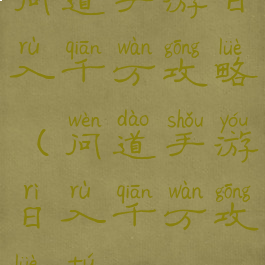 问道手游日
rù qiān wàn gōng lüè
入千万攻略
wèn dào shǒu yóu
(问道手游
rì rù qiān wàn gōng
日入千万攻